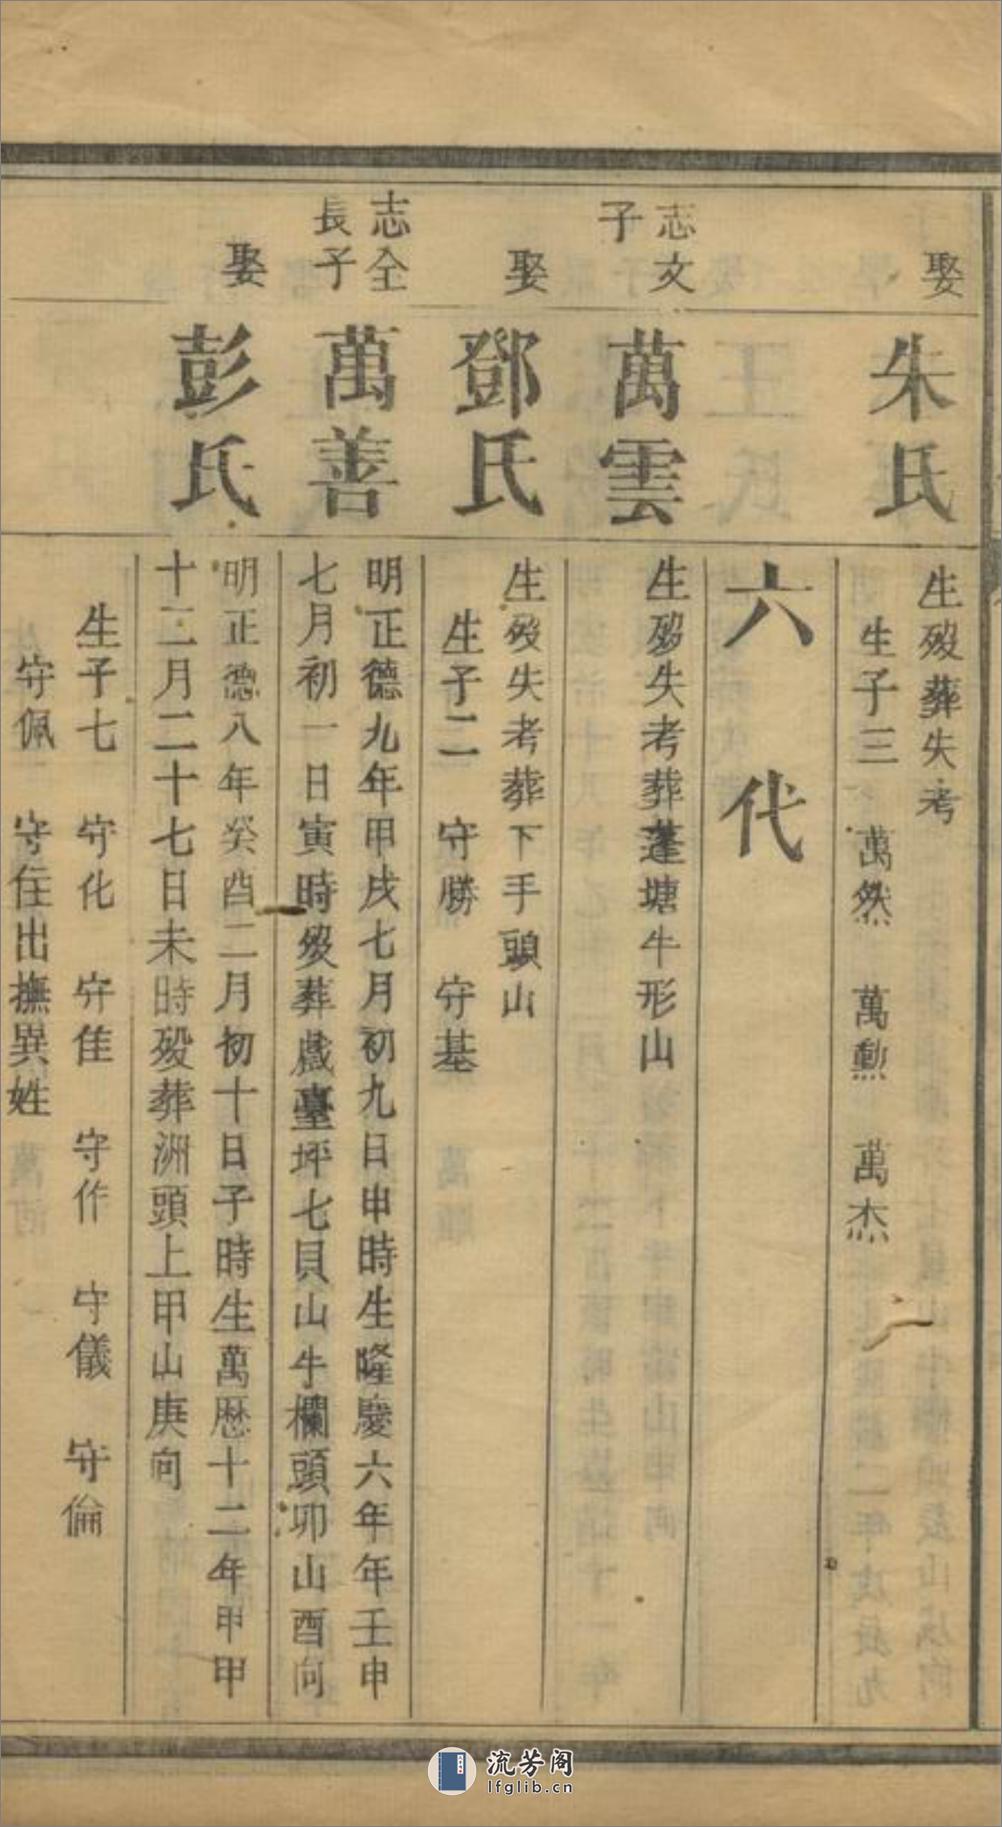 娶
朱氏
生歿葬失考
生子三 萬然 萬勲 萬杰
六代
志文
子
萬雲
生歿失考葬蓬塘牛形山
娶
鄧氏
生歿失考葬下手頭山
生子二 守勝 守基
志全
長子
萬善
明正德九年甲戌七月初九日申時生隆慶六年年壬申
七月初一日寅時歿葬戲臺坪七貝山牛欄頭卯山酉向
娶
彭氏
明正德八年癸酉二月初十日子時生萬曆十二年甲甲
十二月二十七日未時歿葬洲頭上甲山庚向
生子七 守化 守佳 守作 守儀 守倫
守佩 守住出撫異姓
流芳阁
lfglib.cn